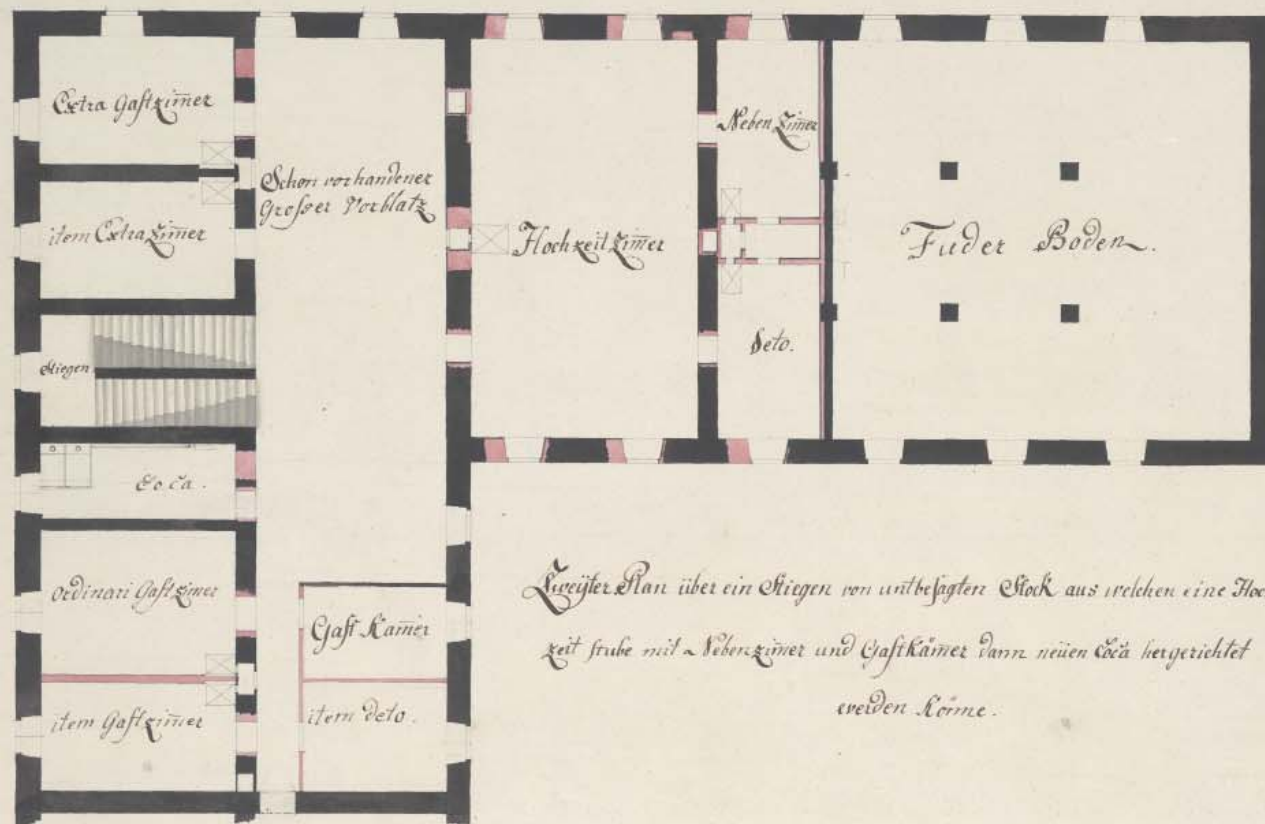 Extra Gastzim̄er
item Extra Zim̄er
Stiegen
Co ca.
ordinari Gastzimer
item Gastzim̄er
Schon vorhandener
Grosser Vorblatz
Gast Kam̄er
item deto.
Hochzeit Zim̄er
Neben Zim̄er
deto.
Fuder Boden.
Zweÿter Plan über ein Stiegen von untbesagten Stock aus welchen eine Hoch
zeit stube mit Nebenzim̄er und Gastkam̄er dann neüen Coca hergerichtet
werden könne.